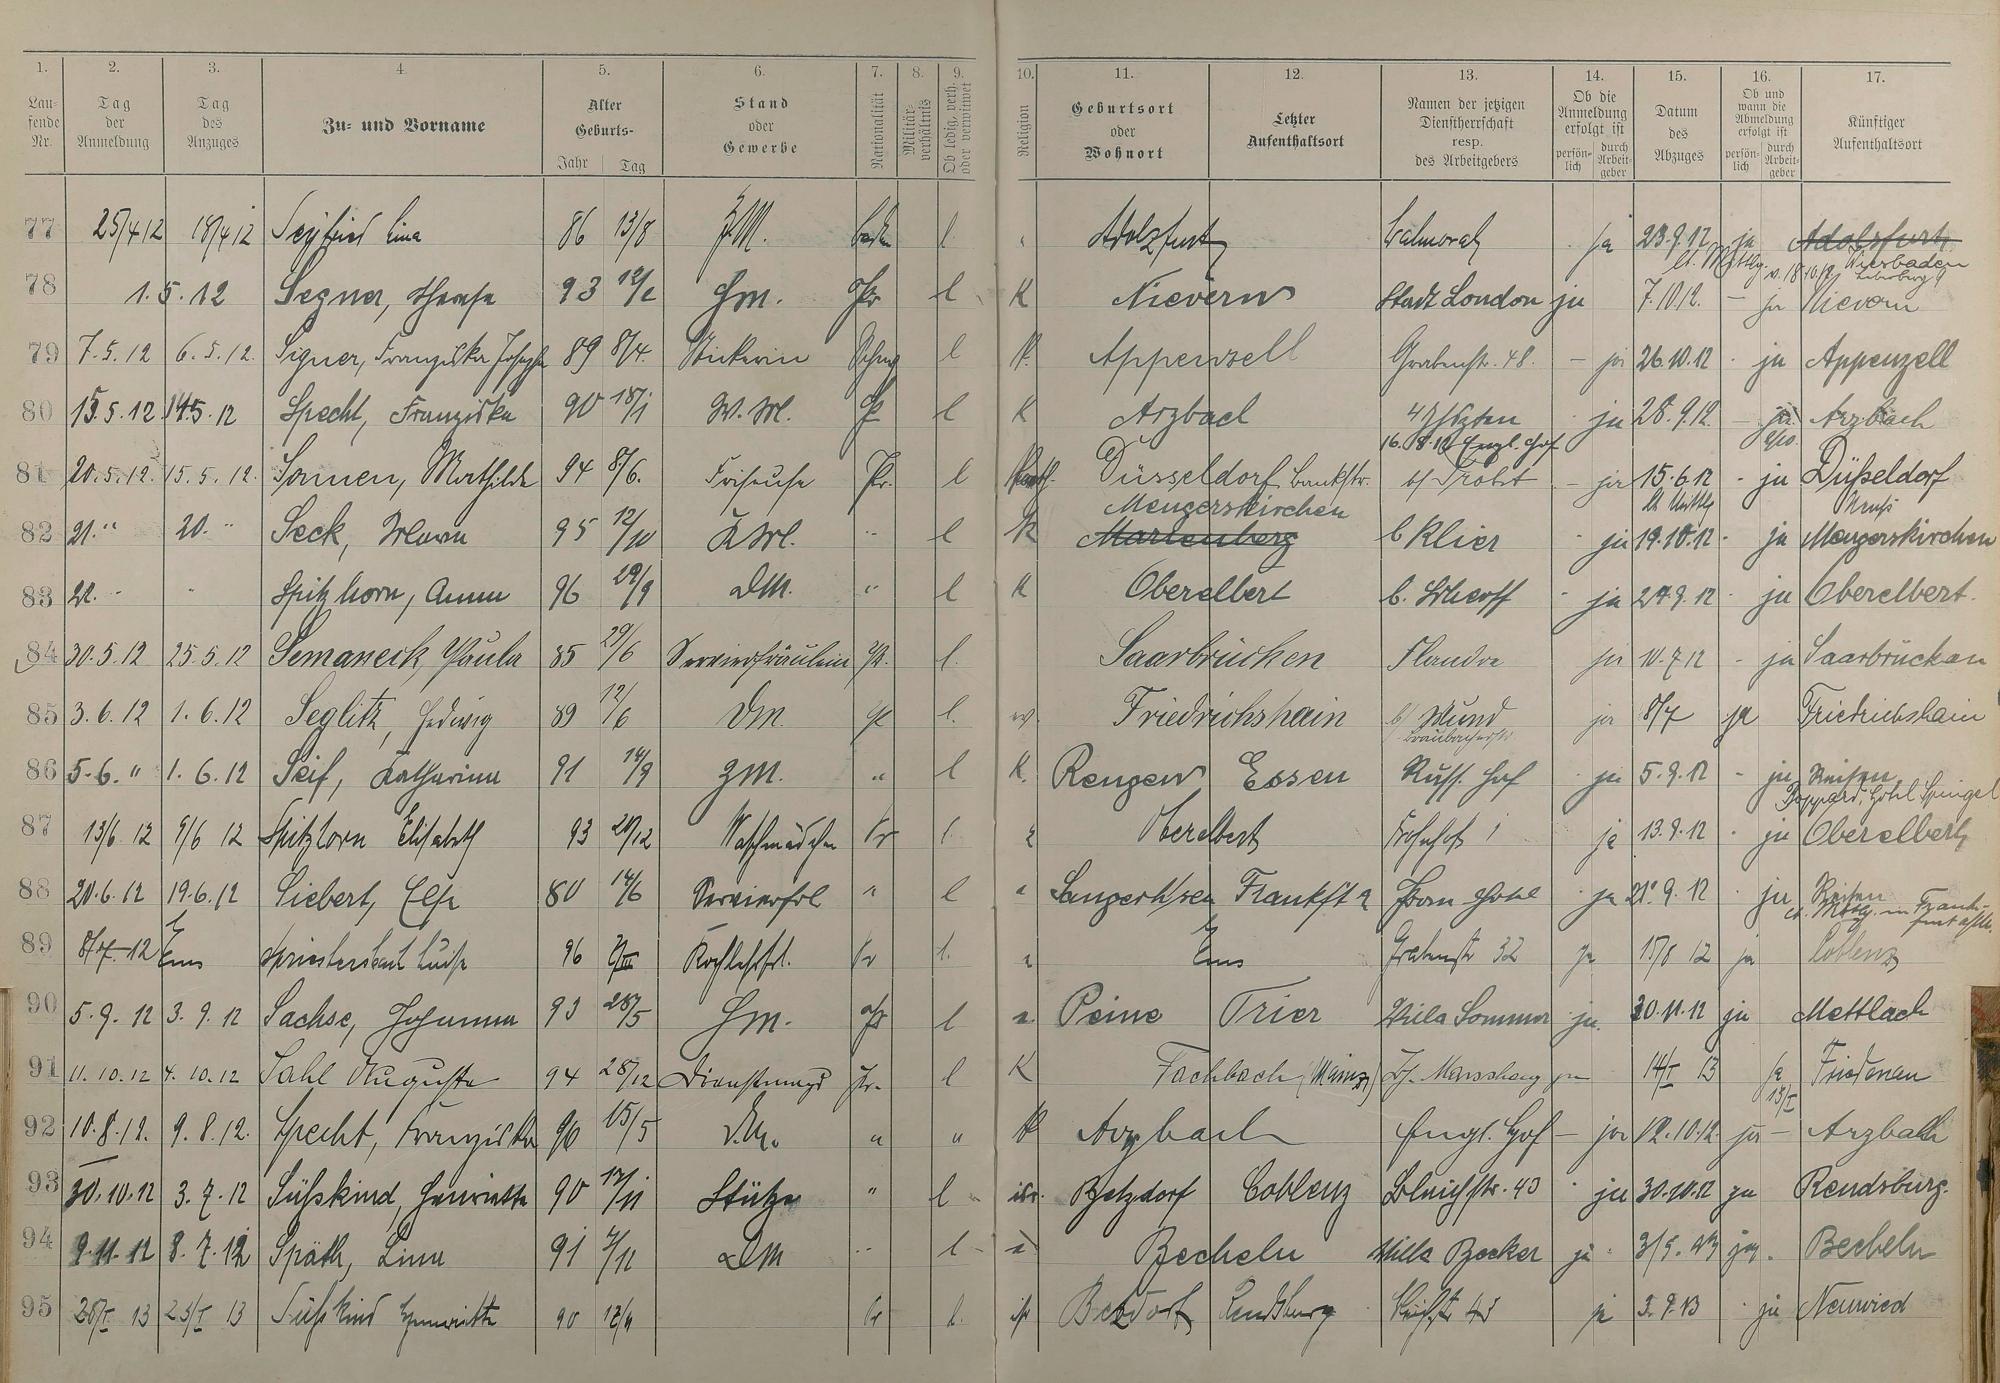 1. 2. 3. 4. 5. 6. 7. 8. 9. 10. 11. 12. 13. 14. 15. 16. 17.
Lau-
fende
Nr.
Tag
der
Anmeldung
Tag
des
Anzuges
Zu- und Vorname
Alter
Geburts-
Jahr Tag
Stand
oder
Gewerbe
Nationalität
Militär-
verhältnis
Ob ledig, verh.
oder verwitwet
Religion
Geburtsort
oder
Wohnort
Letzter
Aufenthaltsort
Namen der jetzigen
Dienstherrschaft
resp.
des Arbeitgebers
Ob die
Anmeldung
erfolgt ist
persön-
lich
durch
Arbeit-
geber
Datum
des
Abzuges
Ob und
wann die
Abmeldung
erfolgt ist
persön-
lich
durch
Arbeit-
geber
Künftiger
Aufenthaltsort
77 25/4 12 18/4 12 Seyfried Lina 86 13/8 l Adolzfurt Balmoral ja 23.9.12 ja Adolzfurt
Wiesbaden
78 1.5.12 Segner, 93 l K Nievern Stadt London ja 7.10.12. – ja Nievern
79 7.5.12 6.5.12. Signer, Franziska Josepha 89 8/4. Stickerin Schwz l K. Appenzell Grabenstr. 48. – ja 26.10.12 ja Appenzell
80 15.5.12 14.5.12 Specht, Franziska 90 18/1 W. M. Pr l K Arzbach 4 Jhszten ja 28.9.12. – ja Arzbach
16.8.12 Engl. Hof
81 20.5.12. 15.5.12. Sonnen, Mathilde 94 8/6. Friseuse Pr. l Kath. Düsseldorf, Bankstr. b/ Probst – ja 15.6.12 - ja Düsseldorf
Mengerskirchen
82 21. " 20. " Seck, Maria 95 12/10 K M. " l K Marienberg b Klier ja 19.10.12 - ja Mengerskirchen
83 22. " " Spitzhorn, Anna 96 29/9 DM. " l K Oberelbert ja 27.9.12 ja Oberelbert.
84 30.5.12 25.5.12 Semaneck, Paula 85 29/6 Servierfräulein Pr. l. Saarbrücken Flandre ja 10.7.12 - ja Saarbrücken
85 3.6.12 1.6.12 Seglitz, Hedwig 89 12/6 DM. Pr l. Friedrichshain b/ Mund ja 8/7 ja Friedrichshain
Braubacherstr
86 5.6. " 1.6.12 Seif, Katharina 91 14/9 ZM. " l K. Rengen Essen Russ. Hof ja 5.9.12 - ja Reisen
Boppard, Hotel Spiegel
87 13/6 12 9/6 12 Spitzhorn Elisabeth 93 Waschmädchen Pr l Oberelbert Bahnhof 1 ja 13.9.12 ja Oberelbert
88 20.6.12 19.6.12 Siebert, Else 80 14/6 Servierfrl " l " Frankft a ja 21.9.12 ja Reisen
89 8/7 12 Ems 96 Kochlehrfrl. Pr l. " Ems Grabenstr 32 ja 15/8 12 ja Coblenz
90 5.9.12 3.9.12 Sachse, Johanna 93 28/5 Hm. Pr l Peine Trier Villa Sommer ja. 30.11.12 ja Mettlach
91 11.10.12 4.10.12 Sahl Auguste 94 28/12 Dienstmagd Pr. l K Fachbach (Mainz) 14/I 13 ja Friedenau
13/I
92 10.8.12. 9.8.12. Specht, Franziska 90 15/5 D.M. " " K Arzbach Engl. Hof – ja 12.10.12. ja – Arzbach
93 30.10.12 3.7.12 Süßkind, Henriette 90 12/11 Stütze " l isr. Betzdorf Coblenz Bleichstr. 43 ja 30.10.12 ja Rendsburg.
94 9.11.12 8.7.12 Späth, Lina 91 DM " l Becheln Villa Becker ja ja. Becheln
95 25/I 13 23/I 13 Süßkind Henriette 90 12/11 Pr l. isr Betzdorf Rendsburg Bleichstr 43 ja 3.9.13 ja Neuwied